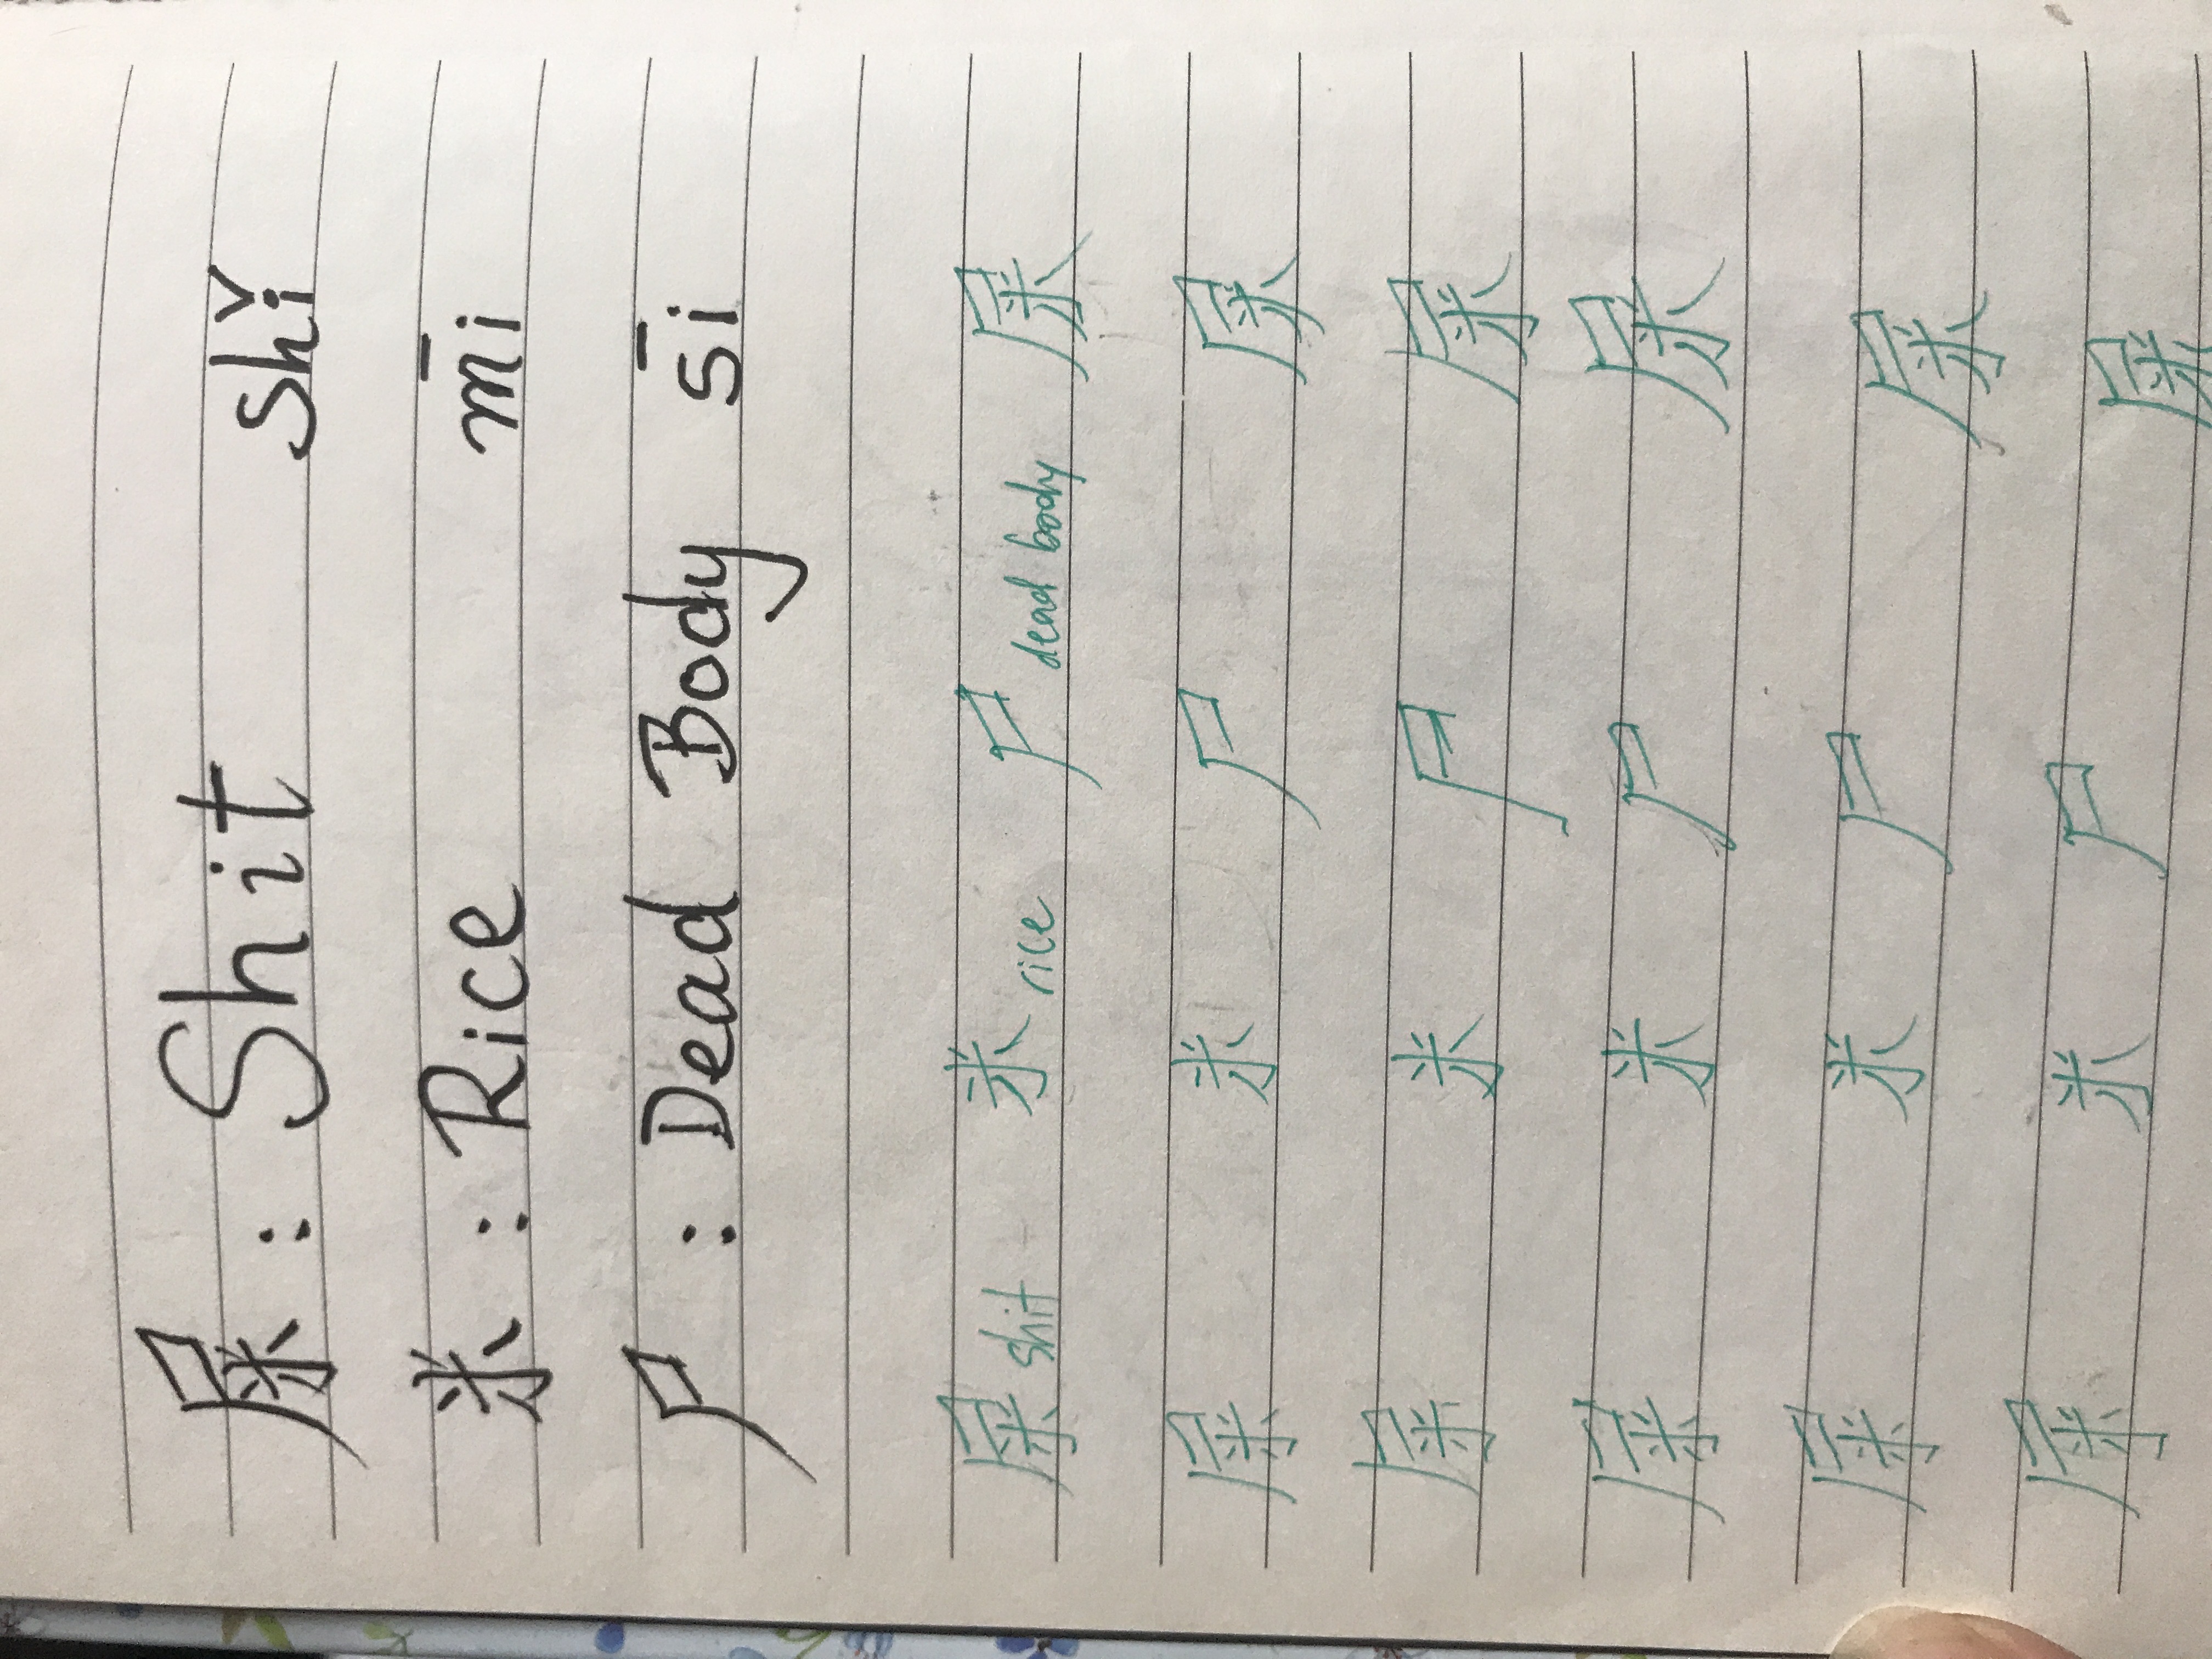 屎 : Shit shǐ
米 : Rice mī
尸 : Dead Body sī
屎 shit 米 rice 尸 dead body 屎
屎 米 尸 屎
屎 米 尸 屎
屎 米 尸 屎
屎 米 尸 屎
屎 米 尸 屎